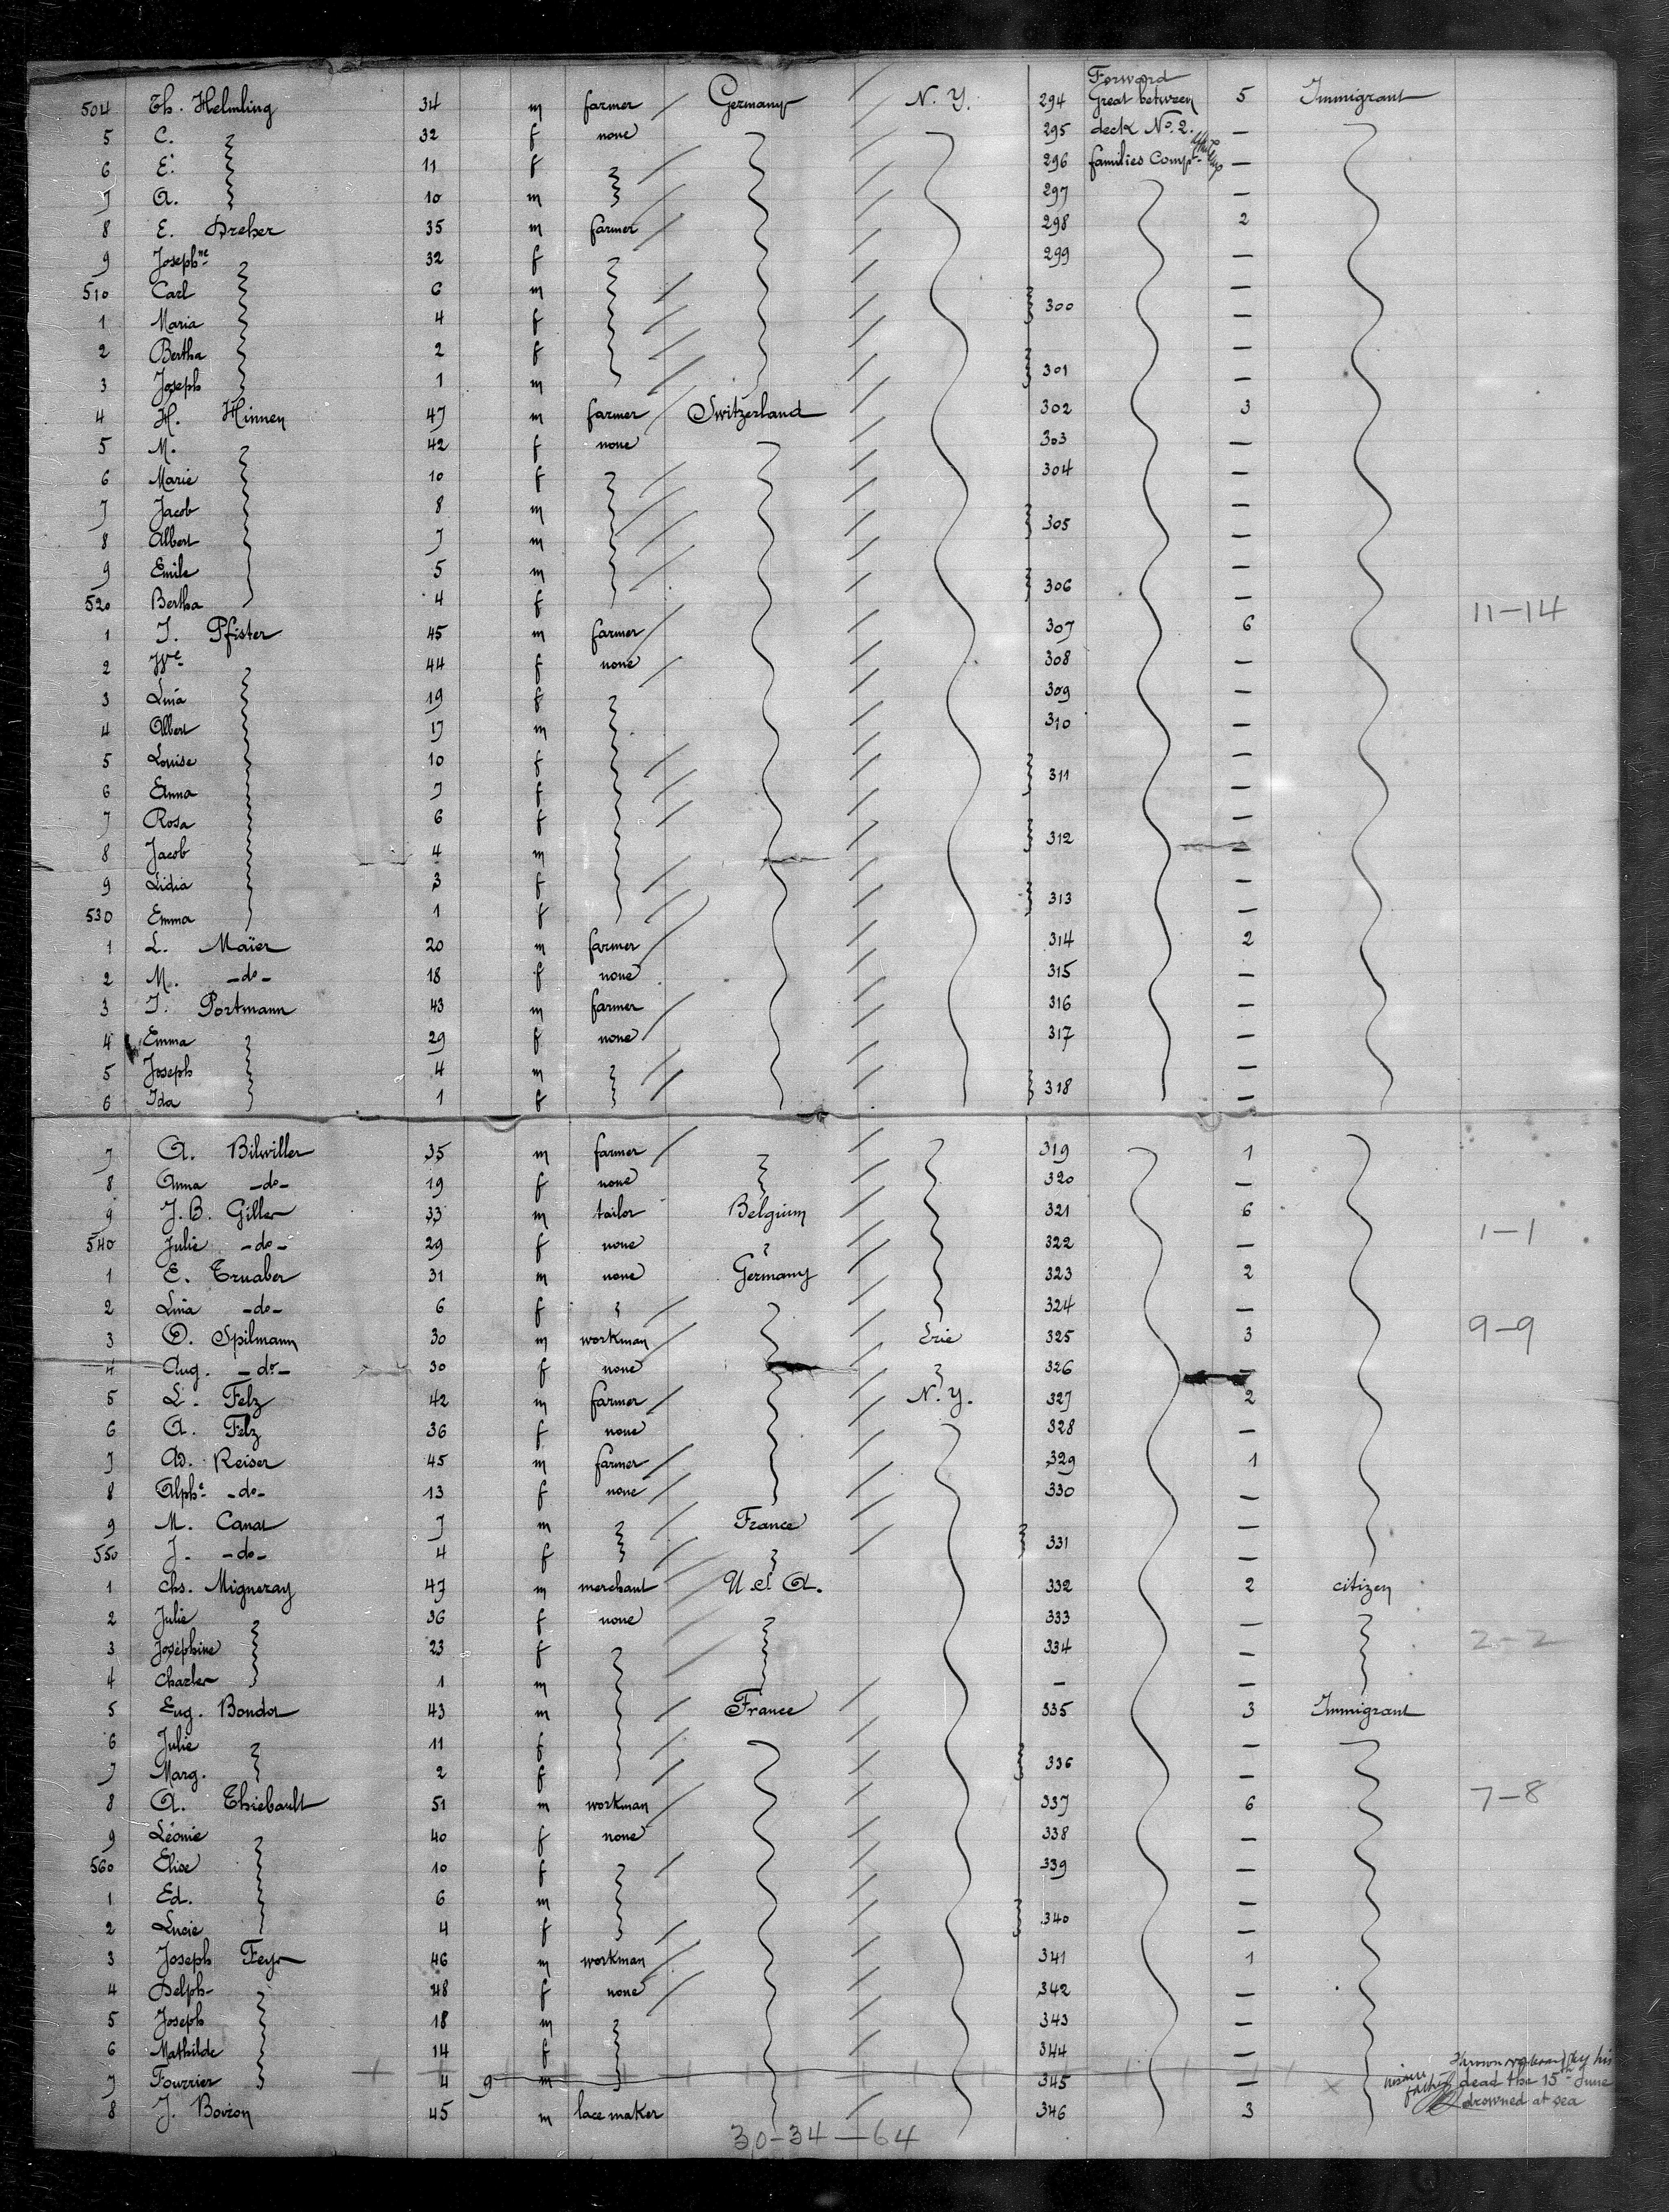 504 Th. Helmling 34 m farmer Germany N. Y. 294 Forward Great between 5 Immigrant
5 C. 32 f none 295 deck No. 2. —
6 E. 11 f 296 families Compt. —
7 A. 10 m 297 —
8 E. Dreher 35 m farmer 298 2
9 Josephne 32 f 299 —
510 Carl 6 m 300 —
1 Maria 4 f —
2 Bertha 2 f 301 —
3 Joseph 1 m —
4 H. Hinnen 47 m farmer Switzerland 302 3
5 M. 42 f none 303 —
6 Marie 10 f 304 —
7 Jacob 8 m 305 —
8 Albert 7 m —
9 Emile 5 m 306 —
520 Bertha 4 f — 11-14
1 J. Pfister 45 m farmer 307 6
2 We 44 f none 308 —
3 Lina 19 f 309 —
4 Albert 17 m 310 —
5 Louise 10 f 311 —
6 Anna 7 f —
7 Rosa 6 f 312 —
8 Jacob 4 m —
9 Lidia 3 f 313 —
530 Emma 1 f —
1 L. Maïer 20 m farmer 314 2
2 M. -do- 18 f none 315 —
3 J. Portmann 43 m farmer 316 —
4 Emma 29 f none 317 —
5 Joseph 4 m 318 —
6 Ida 1 f —
7 A. Bilwiller 35 m farmer 319 1
8 Anna -do- 19 f none 320 —
9 J. B. Giller 33 m tailor Belgium 321 6
540 Julie -do- 29 f none 322 — 1-1
1 E. Truaber 31 m none Germany 323 2
2 Lina -do- 6 f 324 —
3 O. Spilmann 30 m workman Erie 325 3 9-9
4 Aug. -do- 30 f none 326 —
5 L. Felz 42 m farmer N. Y. 327 2
6 A. Felz 36 f none 328 —
7 Ad. Reiser 45 m farmer 329 1
8 Alphe -do- 13 f none 330 —
9 M. Canat 7 m France 331 —
550 J. -do- 4 f —
1 Chs. Migneray 47 m merchant U. S. A. 332 2 citizen
2 Julie 36 f none 333 —
3 Joséphine 23 f 334 — 2-2
4 Charles 1 m — —
5 Eug. Bondot 43 m France 335 3 Immigrant
6 Julie 11 f 336 —
7 Marg. 2 f —
8 A. Thiebault 51 m workman 337 6 7-8
9 Léonie 40 f none 338 —
560 Elise 10 f 339 —
1 Ed. 6 m 340 —
2 Lucie 4 f —
3 Joseph Feyr 46 m workman 341 1
4 Delph- 48 f none 342 —
5 Joseph 18 m 343 —
6 Mathilde 14 f 344 —
7 Fourrier 4 9 m 345 — × Thrown overboard by his father dead the 15th June
8 J. Bovion 45 m lace maker 346 3 drowned at sea
30-34-64